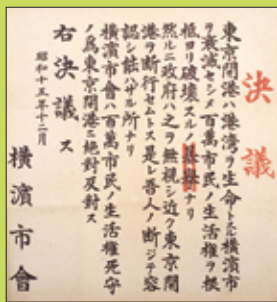 決議
東京開港ハ港湾ヲ生命トスル横濱市
ヲ衰滅セシメ百萬市民ノ生活權ヲ根
底ヨリ破壊スルノ暴擧ナリ
然ルニ政府ハ之ヲ無視シ近ク東京開
港ヲ断行セムトス是レ吾人ノ断ジテ容
認シ能ハザル所ナリ
横濱市會ハ百萬市民ノ生活權死守
ノ為東京開港ニ絶對反對ス
右決議ス
昭和十五年十二月
横濱市會